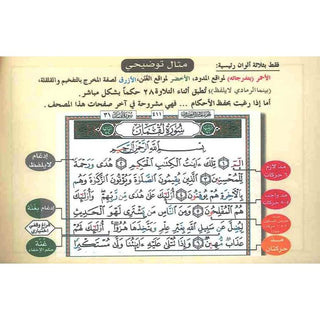 مثال توضيحي
فقط بثلاثة ألوان رئيسية:
الأحمر (بتدرجاته) لمواقع المدود، الأخضر لمواقع الغنن، الأزرق لصفة المخرج بالتفخيم والقلقلة،
(بينما الرمادي لا يلفظ) تُطبق أثناء التلاوة ٢٨ حكماً بشكل مباشر.
أما إذا رغبت بحفظ الأحكام ... فهي مشروحة في آخر صفحات هذا المصحف.
٤١١
سورة لقمان
بسم الله الرحمن الرحيم
الٓمٓ ١ تِلْكَ ءَايَٰتُ ٱلْكِتَٰبِ ٱلْحَكِيمِ ٢ هُدًى وَرَحْمَةً
لِّلْمُحْسِنِينَ ٣ ٱلَّذِينَ يُقِيمُونَ ٱلصَّلَوٰةَ وَيُؤْتُونَ ٱلزَّكَوٰةَ وَهُم
بِٱلْأَخِرَةِ هُمْ يُوقِنُونَ ٤ أُوْلَٰٓئِكَ عَلَىٰ هُدًى مِّن رَّبِّهِمْ وَأُوْلَٰٓئِكَ
هُمُ ٱلْمُفْلِحُونَ ٥ وَمِنَ ٱلنَّاسِ مَن يَشْتَرِى لَهْوَ ٱلْحَدِيثِ
لِيُضِلَّ عَن سَبِيلِ ٱللَّهِ بِغَيْرِ عِلْمٍ وَيَتَّخِذَهَا هُزُوًا أُوْلَٰٓئِكَ لَهُمْ
عَذَابٌ مُّهِينٌ ٦ وَإِذَا تُتْلَىٰ عَلَيْهِ ءَايَٰتُنَا وَلَّىٰ مُسْتَكْبِرًا
مد لازم
٦ حركات
مد واجب
مد
حركتان
إدغام
لا يلفظ
إدغام بغنة
غنة